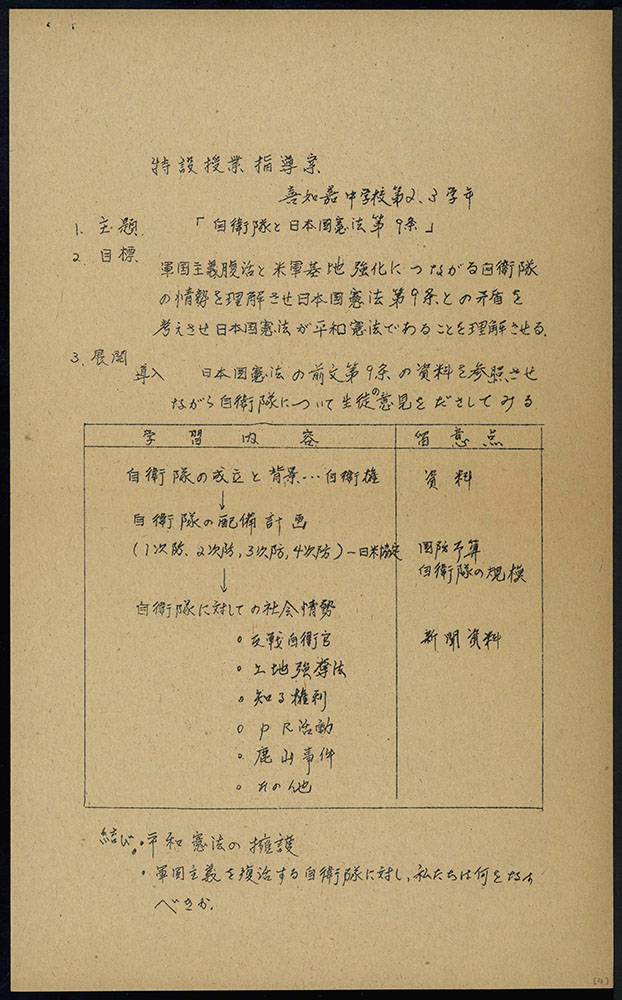 特設授業指導案
喜如嘉中学校第2、3学年
1. 主題 「自衛隊と日本国憲法第9条」
2. 目標 軍国主義腹治と米軍基地強化につながる自衛隊
の情勢を理解させ日本国憲法第9条との矛盾を
考えさせ日本国憲法が平和憲法であることを理解させる.
3. 展開
導入 日本国憲法の前文第9条の資料を参照させ
ながら自衛隊について生徒の意見をださしてみる
学習内容 留意点
自衛隊の成立と背景…自衛権 資料
↓
自衛隊の配備計画
(1次防、2次防,3次防,4次防)―日米協定 国防予算
自衛隊の規模
↓
自衛隊に対しての社会情勢
。反戦自衛官 新聞資料
。土地強奪法
。知る権利
。PR活動
。鹿山事件
。その他
結び。・平和憲法の擁護
・軍国主義を復治する自衛隊に対し,私たちは何をなす
べきか.
(4)